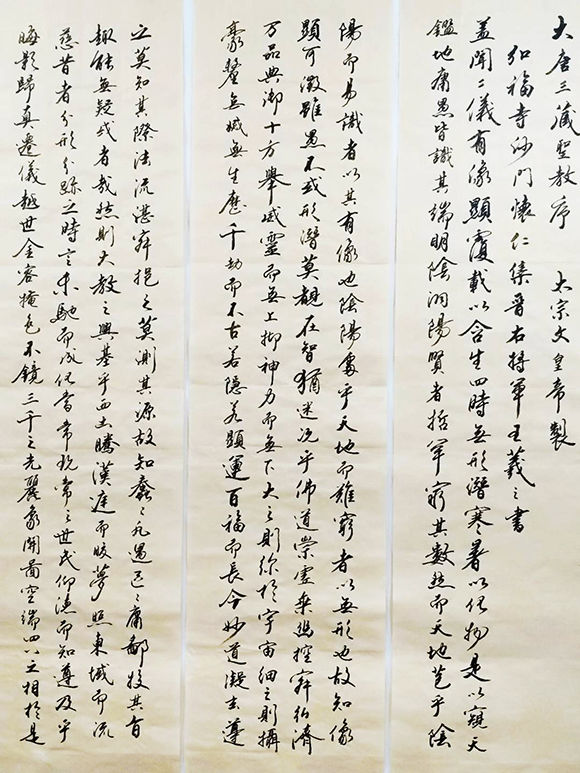 大唐三藏聖教序 太宗文皇帝製
弘福寺沙門懷仁集晉右將軍王羲之書
蓋聞二儀有像顯覆載以含生四時無形潛寒暑以化物是以窺天
鑑地庸愚皆識其端明陰洞陽賢者哲罕窮其數然而天地苞乎陰
陽而易識者以其有像也陰陽處乎天地而難窮者以無形也故知像
顯可徵雖愚不惑形潛莫覩在智猶迷況乎佛道崇虛乘幽控寂弘濟
万品典御十方舉威靈而無上抑神力而無下大之則彌於宇宙細之則攝
豪釐無滅無生歷千劫而不古若隱若顯運百福而長今妙道凝玄遵
之莫知其際法流湛寂挹之莫測其源故知蠢々凡愚區々庸鄙投其旨
趣能無疑或者哉然則大教之興基乎西土騰漢庭而皎夢照東域而流
慈昔者分形分跡之時言未馳而成化當常現常之世民仰德而知遵及乎
晦影歸真遷儀越世金容掩色不鏡三千之光麗象開圖空端四八之相於是